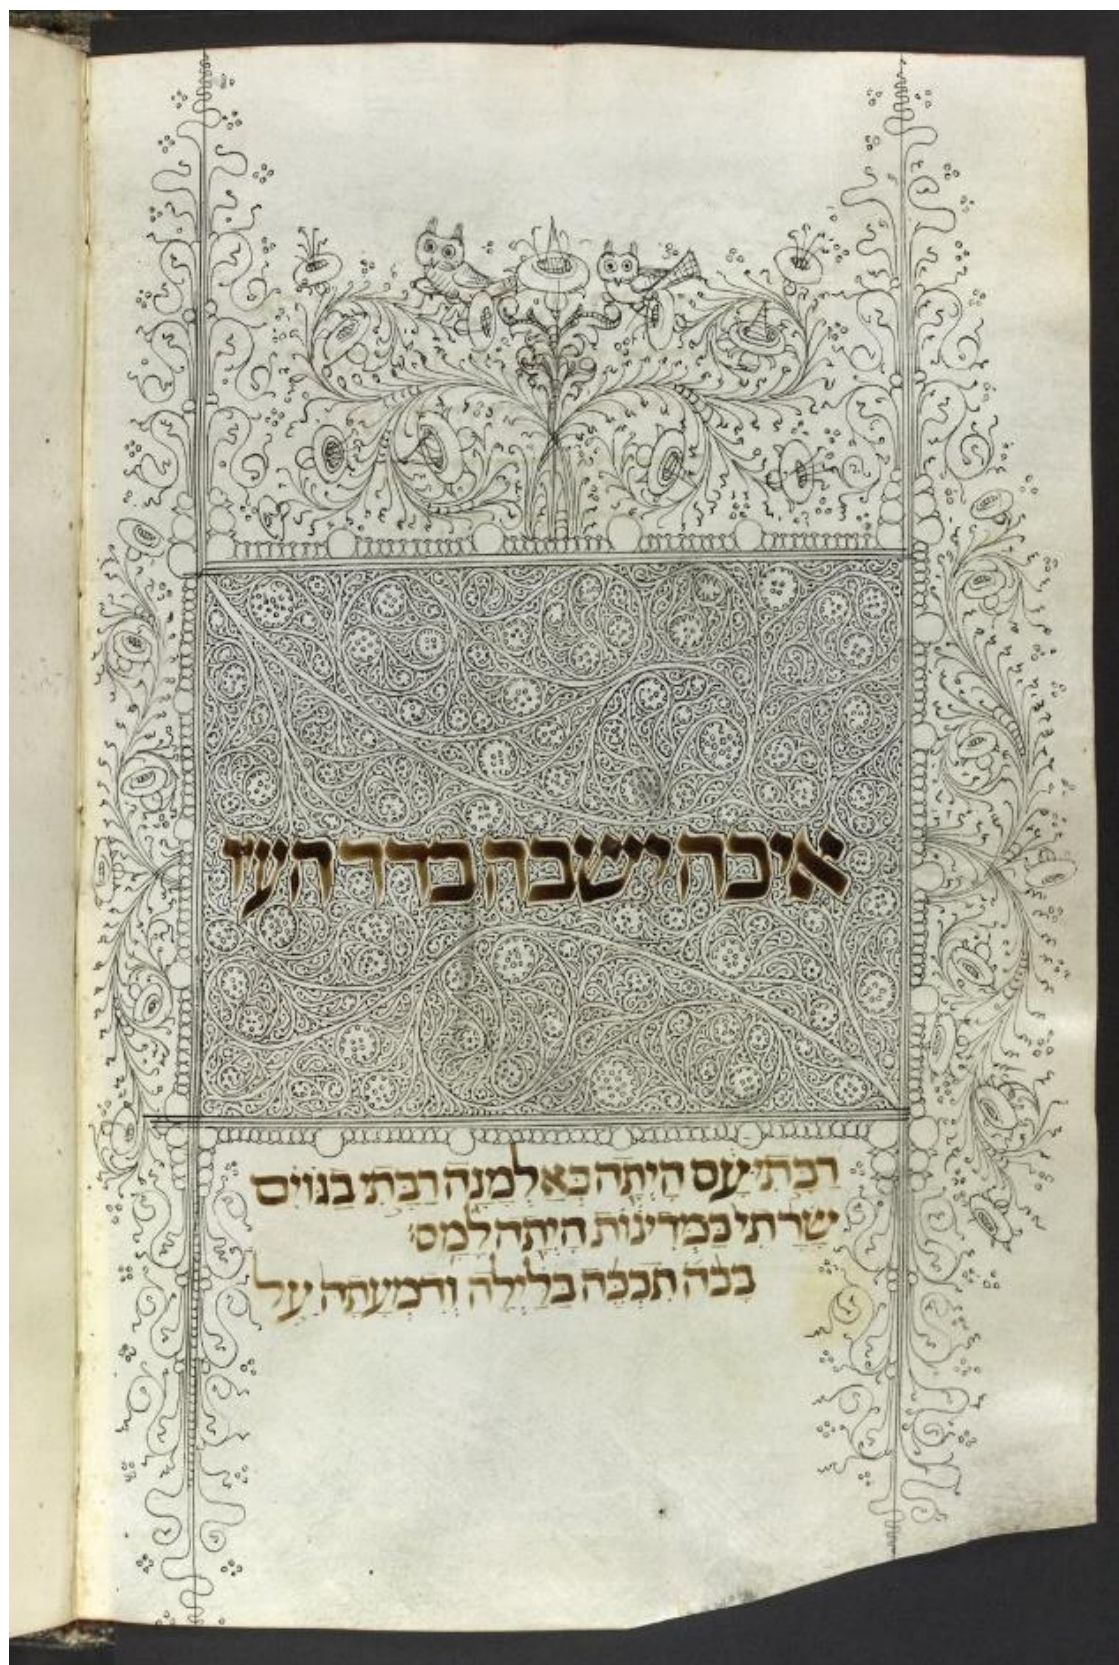 איכה ישבה בדד העיר
רַבָּתִי עָם הָיְתָה כְּאַלְמָנָה רַבָּתִי בַגּוֹיִם
שָׂרָתִי בַּמְּדִינוֹת הָיְתָה לָמַס׃
בָּכֹה תִבְכֶּה בַּלַּיְלָה וְדִמְעָתָהּ עַל